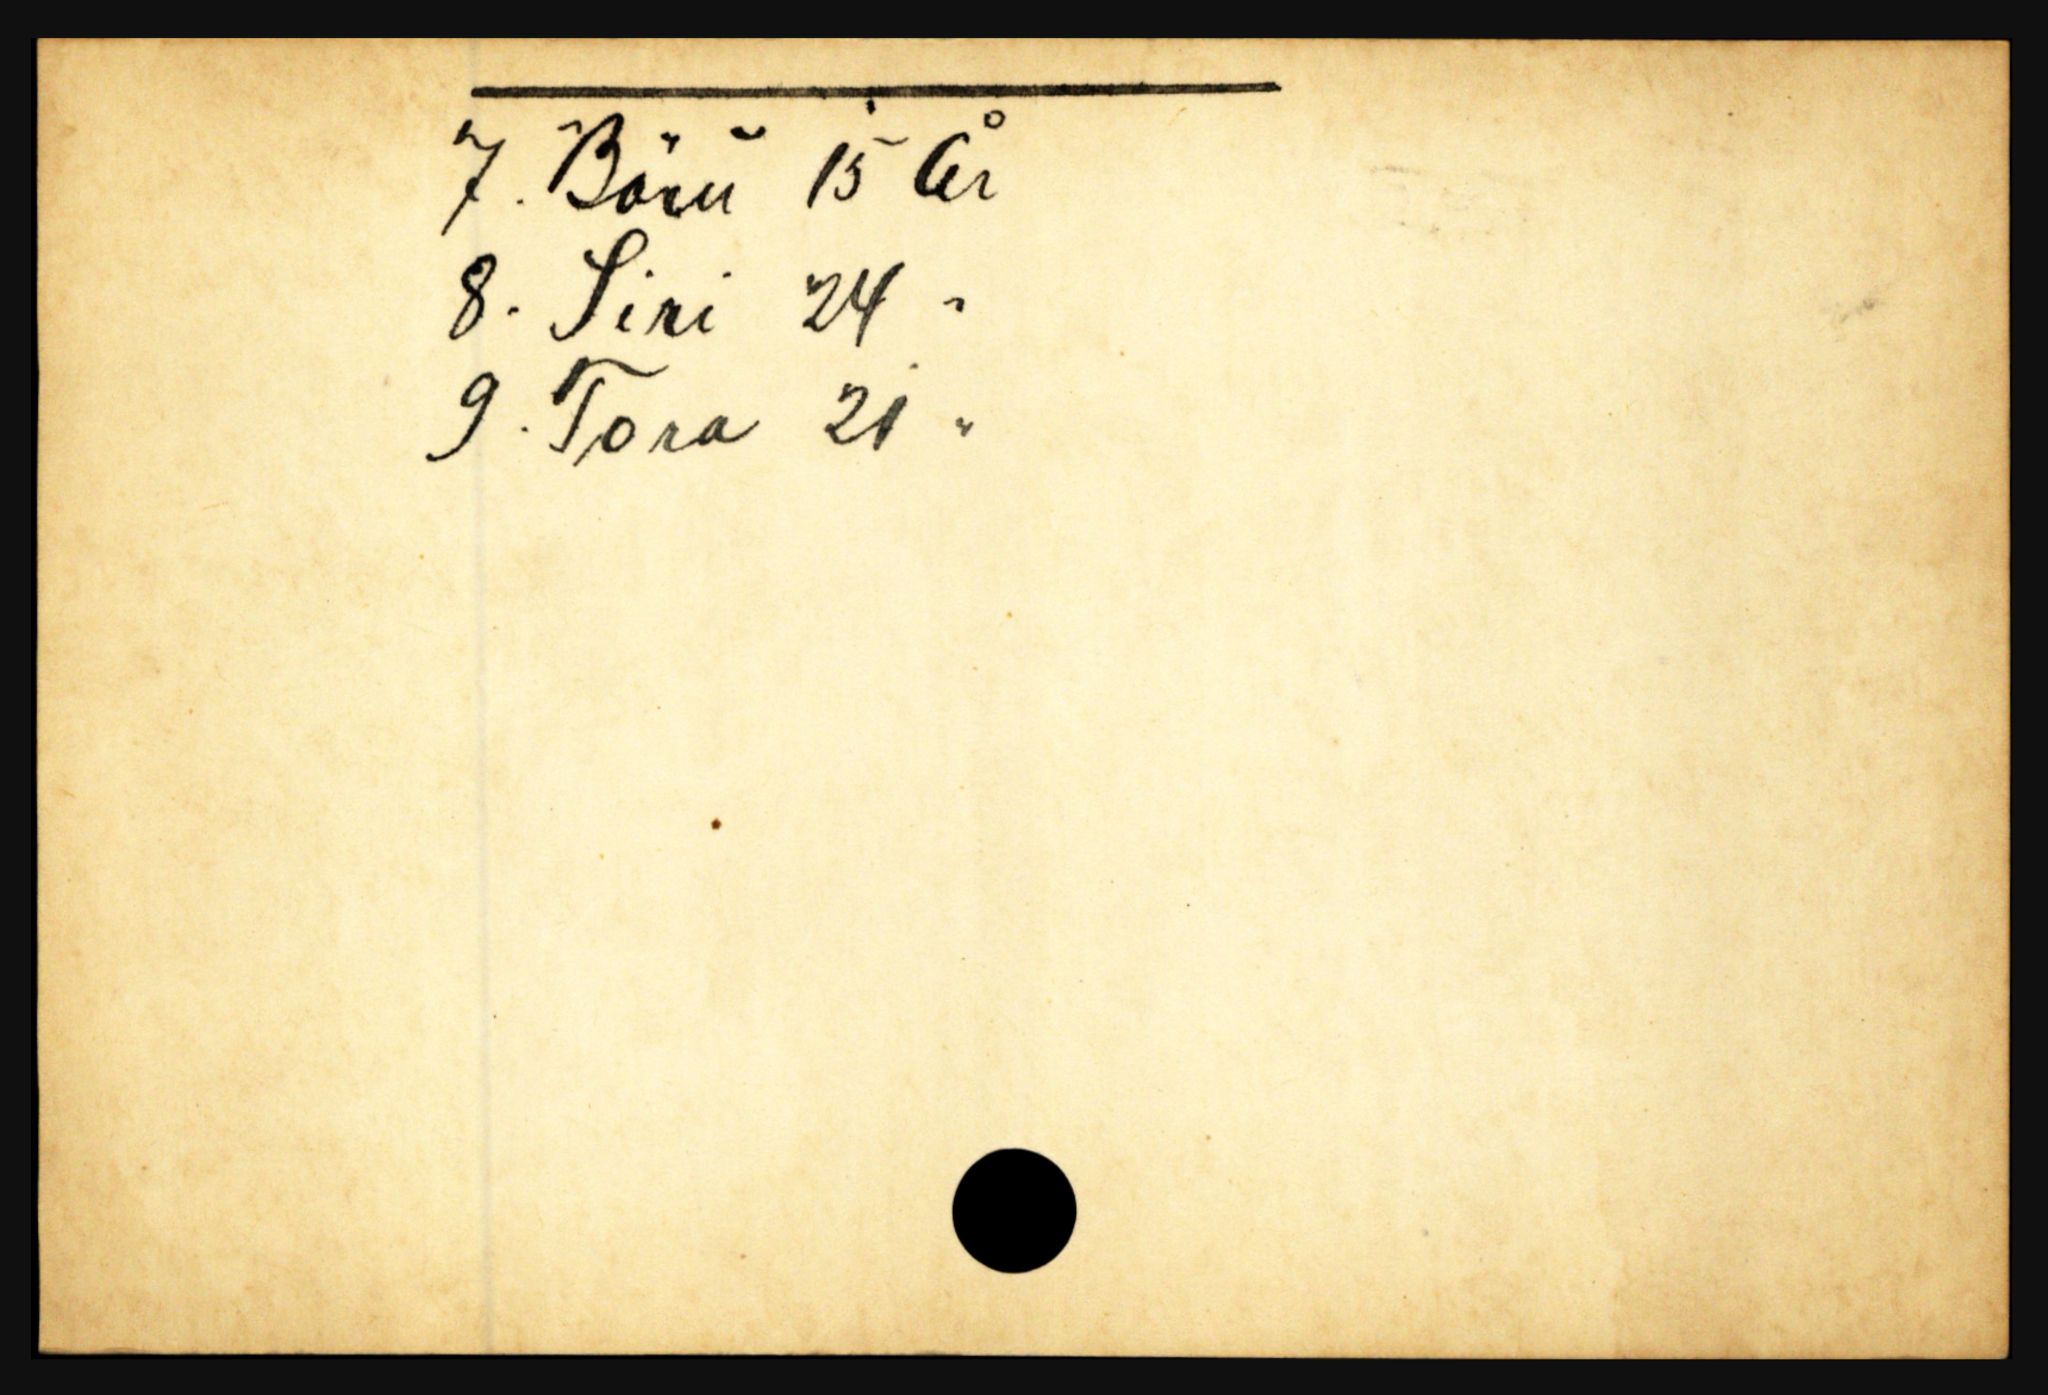 7. Börü 15 År
8. Siri 24 "
9. Tora 21 "